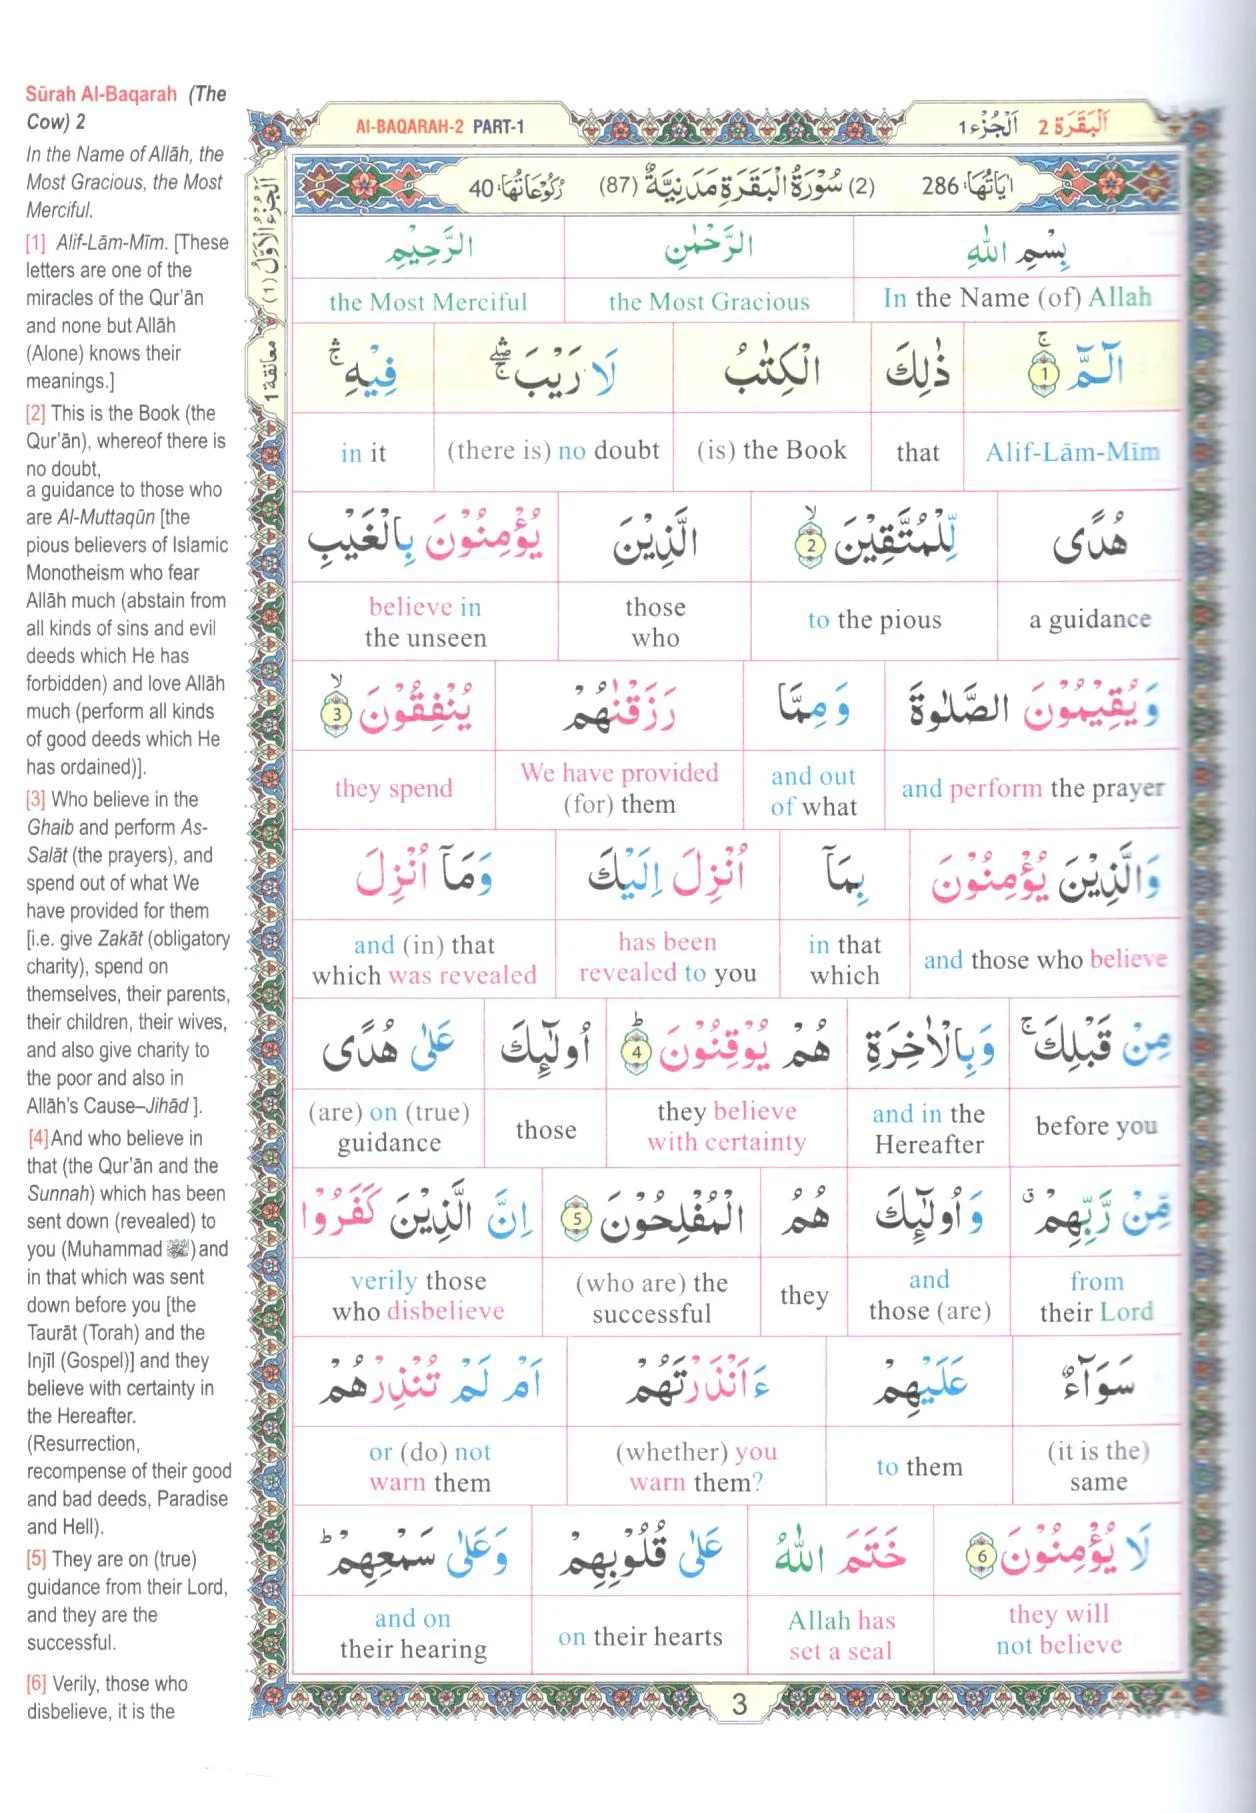 Sūrah Al-Baqarah (The
Cow) 2
In the Name of Allāh, the
Most Gracious, the Most
Merciful.
[1] Alif-Lām-Mīm. [These
letters are one of the
miracles of the Qur'ān
and none but Allāh
(Alone) knows their
meanings.]
[2] This is the Book (the
Qur'ān), whereof there is
no doubt,
a guidance to those who
are Al-Muttaqūn [the
pious believers of Islamic
Monotheism who fear
Allāh much (abstain from
all kinds of sins and evil
deeds which He has
forbidden) and love Allāh
much (perform all kinds
of good deeds which He
has ordained)].
[3] Who believe in the
Ghaib and perform As-
Salāt (the prayers), and
spend out of what We
have provided for them
[i.e. give Zakāt (obligatory
charity), spend on
themselves, their parents,
their children, their wives,
and also give charity to
the poor and also in
Allāh's Cause–Jihād ].
[4]And who believe in
that (the Qur'ān and the
Sunnah) which has been
sent down (revealed) to
you (Muhammad ﷺ) and
in that which was sent
down before you [the
Taurāt (Torah) and the
Injīl (Gospel)] and they
believe with certainty in
the Hereafter.
(Resurrection,
recompense of their good
and bad deeds, Paradise
and Hell).
[5] They are on (true)
guidance from their Lord,
and they are the
successful.
[6] Verily, those who
disbelieve, it is the
اَلْجُزْءُ الْاَوَّلُ (1)
معانقة 1
Al-BAQARAH-2 PART-1
اَلْجُزْء 1 اَلْبَقَرَة 2
اٰيَاتُهَا: 286 (2) سُوْرَةُ الْبَقَرَةِ مَدَنِيَّةٌ (87) رُكُوْعَاتُهَا: 40
بِسْمِ اللّٰهِ الرَّحْمٰنِ الرَّحِيْمِ
the Most Merciful the Most Gracious In the Name (of) Allah
الٓمّٓ ۚ 1 ذٰلِكَ الْكِتٰبُ لَا رَيْبَ ۛۖ فِيْهِ ۛۚ
in it (there is) no doubt (is) the Book that Alif-Lām-Mīm
هُدًى لِّلْمُتَّقِيْنَ ۙ 2 الَّذِيْنَ يُؤْمِنُوْنَ بِالْغَيْبِ
believe in those to the pious a guidance
the unseen who
وَيُقِيْمُوْنَ الصَّلٰوةَ وَمِمَّا رَزَقْنٰهُمْ يُنْفِقُوْنَ ۙ 3
they spend We have provided and out and perform the prayer
(for) them of what
وَالَّذِيْنَ يُؤْمِنُوْنَ بِمَآ اُنْزِلَ اِلَيْكَ وَمَآ اُنْزِلَ
and (in) that has been in that and those who believe
which was revealed revealed to you which
مِنْ قَبْلِكَ ۚ وَبِالْاٰخِرَةِ هُمْ يُوْقِنُوْنَ ؕ 4 اُولٰٓئِكَ عَلٰى هُدًى
(are) on (true) those they believe and in the before you
guidance with certainty Hereafter
مِّنْ رَّبِّهِمْ ۗ وَاُولٰٓئِكَ هُمُ الْمُفْلِحُوْنَ 5 اِنَّ الَّذِيْنَ كَفَرُوْا
verily those (who are) the they and from
who disbelieve successful those (are) their Lord
سَوَآءٌ عَلَيْهِمْ ءَاَنْذَرْتَهُمْ اَمْ لَمْ تُنْذِرْهُمْ
or (do) not (whether) you to them (it is the)
warn them warn them? same
لَا يُؤْمِنُوْنَ 6 خَتَمَ اللّٰهُ عَلٰى قُلُوْبِهِمْ وَعَلٰى سَمْعِهِمْ ؕ
and on on their hearts Allah has they will
their hearing set a seal not believe
3